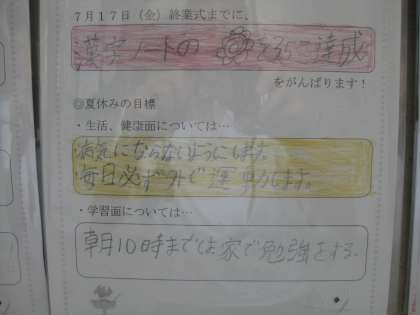 7月17日(金)終業式までに、
漢字ノートの を 達成
をがんばります！
◎夏休みの目標
・生活、健康面については…
病気にならないようにします。
毎日必ず で運動します。
・学習面については…
朝10時までは家で勉強をする。